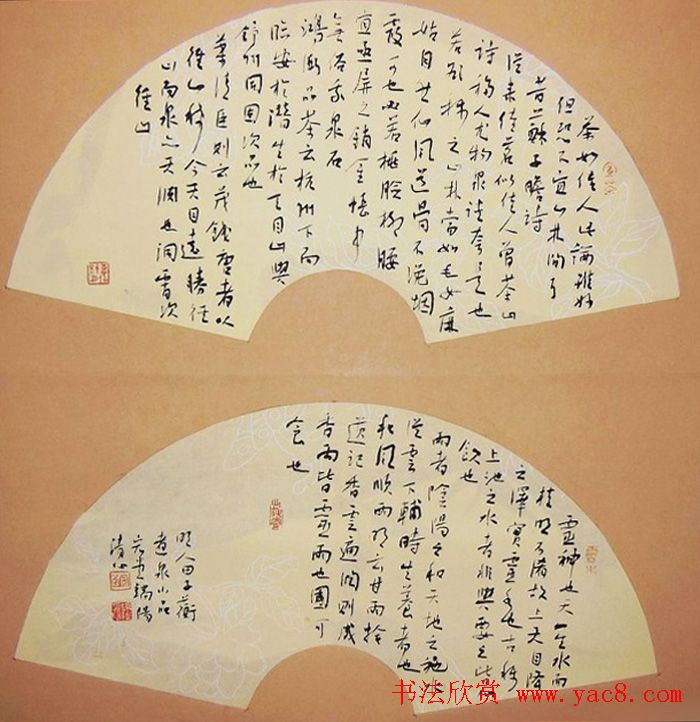 茶如佳人此論雖妙
但恐不宜山林間耳
昔蘇子瞻詩
從來佳茗似佳人曾茶山
詩移人尤物衆談夸是也
若欲稱之山林當如毛女麻
姑自然仙風道骨不浼烟
霞可也必若桃臉柳腰
宜亟屏之銷金帳中
無俗我泉石
鴻漸品茶云杭州下而
臨安於潛生於天目山與
舒州同固次品也
葉清臣則云茂錢唐者以
徑山稀今天目遠勝徑
山而泉亦天淵也洞霄次
徑山
靈神也天一生水而
精明不淆故上天自降
之澤實靈水也古稱
上池之水者非與要之皆仙
飲也
雨者陰陽之和天地之施水
從雲下輔時生養者也
和風順雨明云甘雨拾
遺記香雲遍潤則成
香雨皆靈雨也固可
食也
明人田子蘅
煮泉小品
端陽
书法欣赏 www.yac8.com